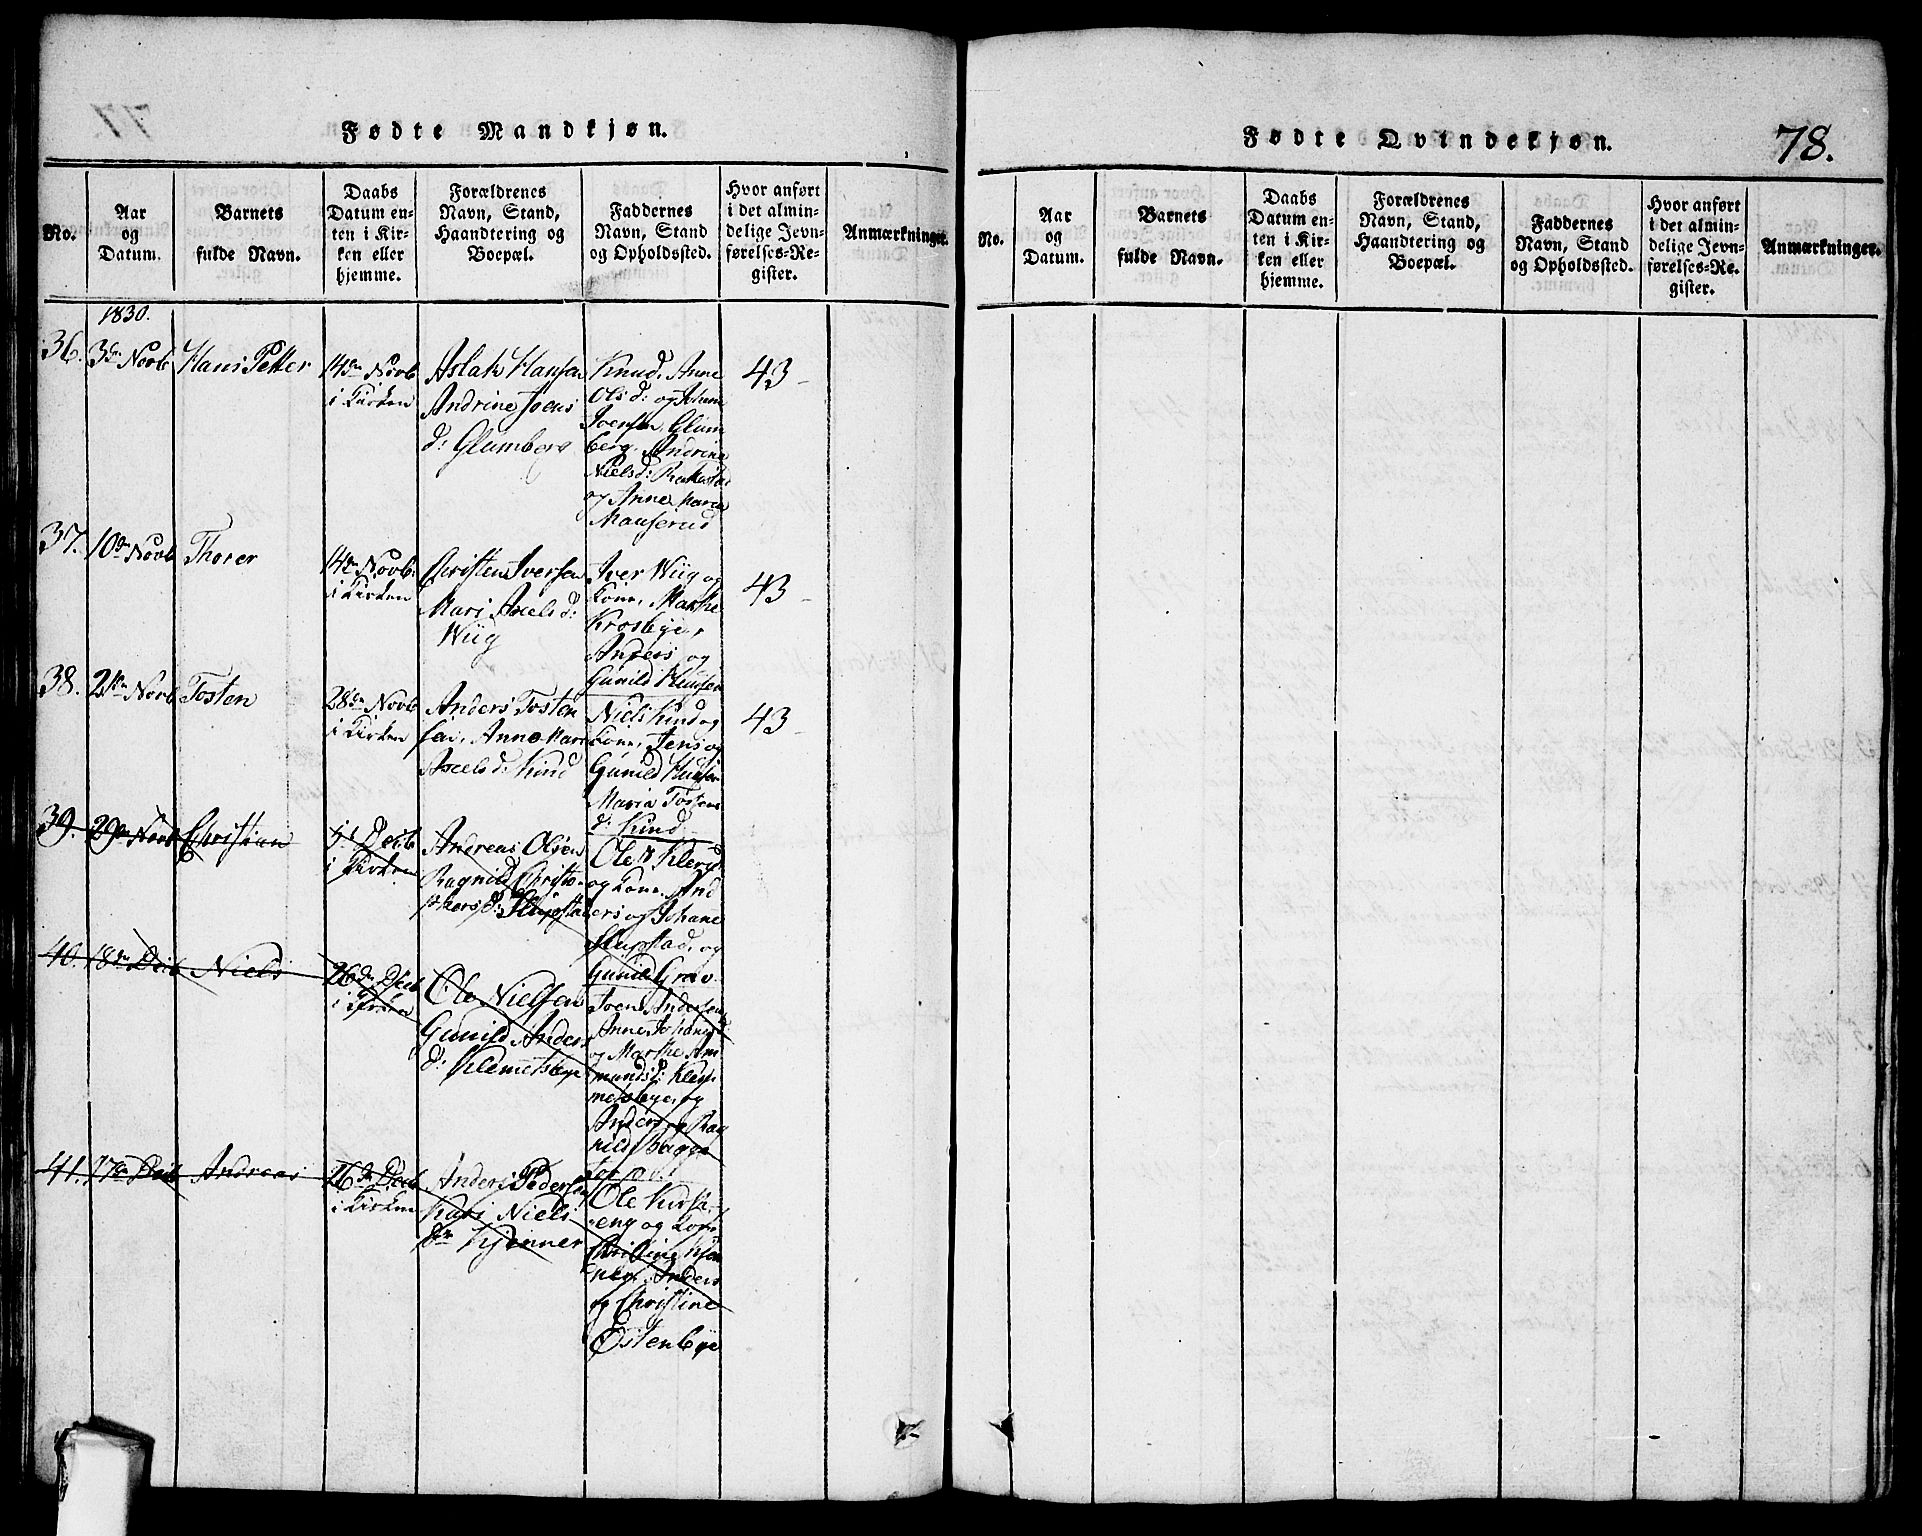 Fødte Mandkjøn.
No.
Aar
og
Datum.
Barnets
fulde Navn.
Daabs
Datum en-
ten i Kir-
ken eller
hjemme.
Forældrenes
Navn, Stand,
Haandtering og
Boepæl.
Faddernes
Navn, Stand
og Opholdssted.
Hvor anført
i det almin-
delige Jevn-
førelses-Re-
gister.
Anmærkninger.
1830.
36.
3die Novb
Hans Petter
14de Novb
i Kirken
Aslak Hansen
Andrine Joens
d: Glumberg
Knud, Anne
Ols d: og Johan
Joensen, Glum
berg, Andrine
Niels d: Rakkestad
og Anne Maria
Mauserud
43
37.
10de Novb
Thorer
14de Novb.
i Kirken
Christen Iversen
Mari Axels d:
Wiig
Iver Wiig og
Kone, Marthe
Krosbye,
Anders og
Gunild Knusen
43
38.
21de Novb
Tosten
28de Novb
i Kirken
Anders Tosten
sen, Anne Mari
Axels d: Kind
Niels Kind og
Kone, Jens og
Gunild
Maria Tostens
d: Kind
43
39.
29de Novb
Christian
5te Decb
i Kirken
Andreas Olsen
Ragnild Christo
phers d: Slupstad
Ole
og Kone, And
ers og Johane
Slupstad, og
Gunild Grav
40.
18de Decb
Niels
26de Decb
i Kirken
Ole Nielsen
Gunild Anders
d: Klemetsbye
Joen Andersen
Anne Johans d:
og Marthe Am
munds d: Klem
metsbye, og
Anders og Rag
nild
41.
17de Decb
Andreas
26de Decb
i Kirken
Anders Pedersen
Kari Niels
dr Kjenner
Ole
eng og Kone
Christine Kjen
ner, Anders
og Christine
Østenbye
Fødte Qvindekjøn.
78.
No.
Aar
og
Datum.
Barnets
fulde Navn.
Daabs
Datum en-
ten i Kir-
ken eller
hjemme.
Forældrenes
Navn, Stand,
Haandtering og
Boepæl.
Faddernes
Navn, Stand
og Opholdssted.
Hvor anført
i det almin-
delige Jevn-
førelses-Re-
gister.
Anmærkninger.